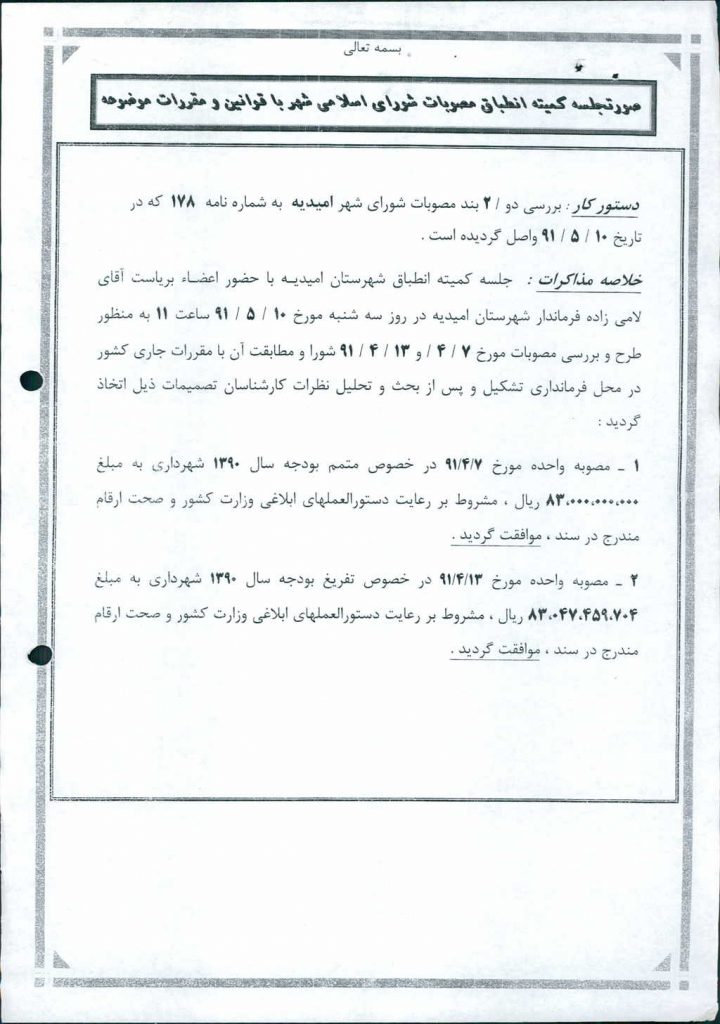 بسمه تعالی
صورتجلسه کمیته انطباق مصوبات شورای اسلامی شهر با قوانین و مقررات موضوعه
دستور کار : بررسی دو / ۲ بند مصوبات شورای شهر امیدیه به شماره نامه ۱۷۸ که در
تاریخ ۱۰ / ۵ / ۹۱ واصل گردیده است .
خلاصه مذاکرات : جلسه کمیته انطباق شهرستان امیدیـه با حضور اعضـاء بریاست آقای
لامی زاده فرماندار شهرستان امیدیه در روز سه شنبه مورخ ۱۰ / ۵ / ۹۱ ساعت ۱۱ به منظور
طرح و بررسی مصوبات مورخ ۷ / ۴ / و ۱۳ / ۴ / ۹۱ شورا و مطابقت آن با مقررات جاری کشور
در محل فرمانداری تشکیل و پس از بحث و تحلیل نظرات کارشناسان تصمیمات ذیل اتخاذ
گردید :
۱ ـ مصوبه واحده مورخ ۹۱/۴/۷ در خصوص متمم بودجه سال ۱۳۹۰ شهرداری به مبلغ
۸۳،۰۰۰،۰۰۰،۰۰۰ ریال ، مشروط بر رعایت دستورالعملهای ابلاغی وزارت کشور و صحت ارقام
مندرج در سند ، موافقت گردید .
۲ ـ مصوبه واحده مورخ ۹۱/۴/۱۳ در خصوص تفریغ بودجه سال ۱۳۹۰ شهرداری به مبلغ
۸۳،۰۴۷،۴۵۹،۷۰۴ ریال ، مشروط بر رعایت دستورالعملهای ابلاغی وزارت کشور و صحت ارقام
مندرج در سند ، موافقت گردید .